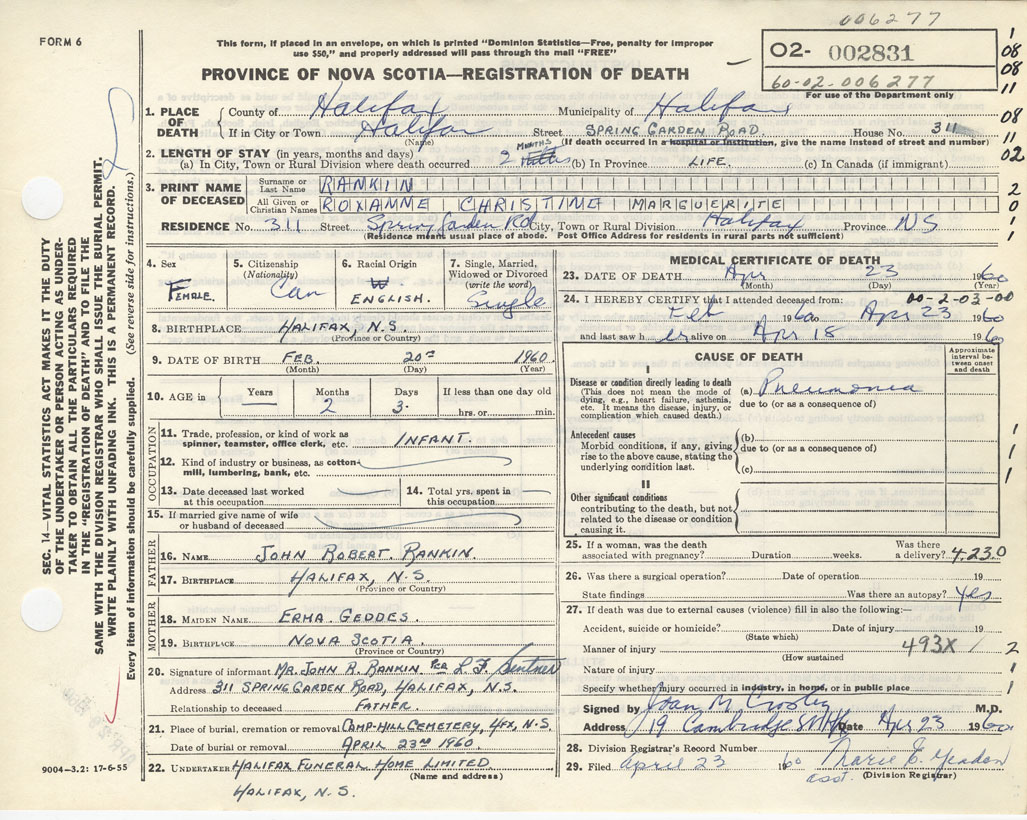 006277
FORM 6
This form, if placed in an envelope, on which is printed "Dominion Statistics—Free, penalty for improper
use $50," and properly addressed will pass through the mail "FREE"
PROVINCE OF NOVA SCOTIA—REGISTRATION OF DEATH
02- 002831
60-02-006277
For use of the Department only
1. PLACE OF DEATH { County of Halifax Municipality of Halifax
If in City or Town Halifax Street SPRING GARDEN ROAD House No. 311
(Name) (If death occurred in a hospital or institution, give the name instead of street and number)
2. LENGTH OF STAY (in years, months and days)
(a) In City, Town or Rural Division where death occurred 2 MONTHS (b) In Province LIFE. (c) In Canada (if immigrant)
3. PRINT NAME OF DECEASED { Surname or Last Name RANKIN
All Given or Christian Names ROXANNE CHRISTINE MARGUERITE
RESIDENCE No. 311 Street Spring Garden Rd City, Town or Rural Division Halifax Province NS
(Residence means usual place of abode. Post Office Address for residents in rural parts not sufficient)
4. Sex FEMALE.
5. Citizenship (Nationality) Can
6. Racial Origin W. ENGLISH.
7. Single, Married, Widowed or Divorced (write the word) Single
8. BIRTHPLACE HALIFAX, N.S.
(Province or Country)
9. DATE OF BIRTH FEB. 20TH 1960
(Month) (Day) (Year)
10. AGE in Years — Months 2 Days 3. If less than one day old hrs. or min.
OCCUPATION
11. Trade, profession, or kind of work as spinner, teamster, office clerk, etc. INFANT.
12. Kind of industry or business, as cotton-mill, lumbering, bank, etc.
13. Date deceased last worked at this occupation
14. Total yrs. spent in this occupation
15. If married give name of wife or husband of deceased
FATHER
16. NAME JOHN ROBERT RANKIN.
17. BIRTHPLACE HALIFAX, N.S.
(Province or Country)
MOTHER
18. MAIDEN NAME ERMA GEDDES.
19. BIRTHPLACE NOVA SCOTIA.
(Province or Country)
20. Signature of informant MR. JOHN R. RANKIN PER L F
Address 311 SPRING GARDEN ROAD, HALIFAX, N.S.
Relationship to deceased FATHER.
21. Place of burial, cremation or removal CAMP-HILL CEMETERY, HFX, N.S.
Date of burial or removal APRIL 23RD 1960.
22. UNDERTAKER HALIFAX FUNERAL HOME LIMITED.
(Name and address)
HALIFAX, N.S.
MEDICAL CERTIFICATE OF DEATH
23. DATE OF DEATH Apr 23 1960
(Month) (Day) (Year)
00-2-03-00
24. I HEREBY CERTIFY that I attended deceased from:
Feb 1960 to Apr 23 1960
and last saw her alive on Apr 18 1960
CAUSE OF DEATH
Approximate interval between onset and death
I
Disease or condition directly leading to death
(This does not mean the mode of dying, e.g., heart failure, asthenia, etc. It means the disease, injury, or complication which caused death.)
(a) Pneumonia
due to (or as a consequence of)
Antecedent causes
Morbid conditions, if any, giving rise to the above cause, stating the underlying condition last.
(b)
due to (or as a consequence of)
(c)
II
Other significant conditions
contributing to the death, but not related to the disease or condition causing it.
25. If a woman, was the death associated with pregnancy? Duration weeks. Was there a delivery? 4.23.0
26. Was there a surgical operation? Date of operation 19
State findings Was there an autopsy? Yes
27. If death was due to external causes (violence) fill in also the following:—
Accident, suicide or homicide? Date of injury 19
(State which)
Manner of injury 493X
(How sustained)
Nature of injury
Specify whether injury occurred in industry, in home, or in public place
Signed by Joan M Crosby M.D.
Address 19 Cambridge St Hfx Date Apr 23 1960
28. Division Registrar's Record Number
29. Filed April 23 1960 Marie E.
asst. (Division Registrar)
SEC. 14—VITAL STATISTICS ACT MAKES IT THE DUTY
OF THE UNDERTAKER OR PERSON ACTING AS UNDER-
TAKER TO OBTAIN ALL THE PARTICULARS REQUIRED
IN THE "REGISTRATION OF DEATH" AND TO FILE THE
SAME WITH THE DIVISION REGISTRAR WHO SHALL ISSUE THE BURIAL PERMIT.
WRITE PLAINLY WITH UNFADING INK. THIS IS A PERMANENT RECORD.
Every item of information should be carefully supplied. (See reverse side for instructions.)
9004-3.2: 17-6-55
1
08
08
11
08
11
02
2
0
1
1
1
1
1
2
1
1